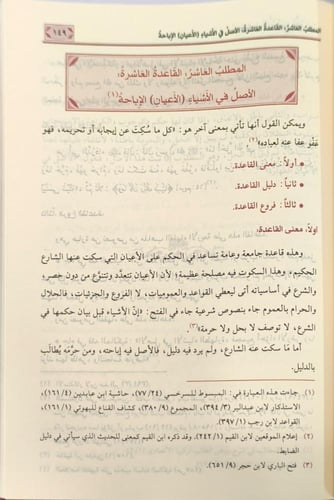 المطلب العاشر: القاعدة العاشرة: الأصل في الأشياء (الأعيان) الإباحة
١٤٩
المطلب العاشر: القاعدة العاشرة:
الأصل في الأشياء (الأعيان) الإباحة(١)
ويمكن القول أنها تأتي بمعنى آخر هو: «كل ما سُكِتَ عن إيجابه أو تحريمه، فهو
عفو عفا عنه لعباده»(٢)
• أولاً: معنى القاعدة.
• ثانياً: دليل القاعدة.
• ثالثاً: فروع القاعدة.
أولاً: معنى القاعدة:
وهذه قاعدة جامعة وعامة تساعد في الحكم على الأعيان التي سكت عنها الشارع
الحكيم، وهذا السكوت فيه مصلحة عظيمة؛ لأن الأعيان تتعدَّد وتتنوَّع من دون حصر،
والشرع في أساسياته أتى ليعطي القواعد والعموميات، لا الفروع والجزئيات، فالحلال
والحرام بالعموم جاء بنصوص شرعية جاء في الفتح: «إنَّ الأشياء قبل بيان حكمها في
الشرع، لا توصف لا بحل ولا حرمة»(٣)
أما مَا سكت عنه الشارع، ولم يرد فيه دليل، فالأصل فيه إباحته، ومن حرَّمه يُطالَب
بالدليل.
(١) جاءت هذه العبارة في: المبسوط للسرخسي (٧٧/٢٤)، حاشية ابن عابدين (١٦١/٤)،
الاستذكار لابن عبدالبر (٣٩٤/٣)، المجموع (٣٨٠/٩)، كشاف القناع للبهوتي (١٦١/١)،
القواعد لابن رجب (٣٩٧/١).
(٢) إعلام الموقعين لابن القيم (٢٤٢/١)، وقد ذكره ابن القيم كمعنى للحديث الذي سيأتي في دليل
الضابط.
(٣) فتح الباري لابن حجر (٦٥١/٩).